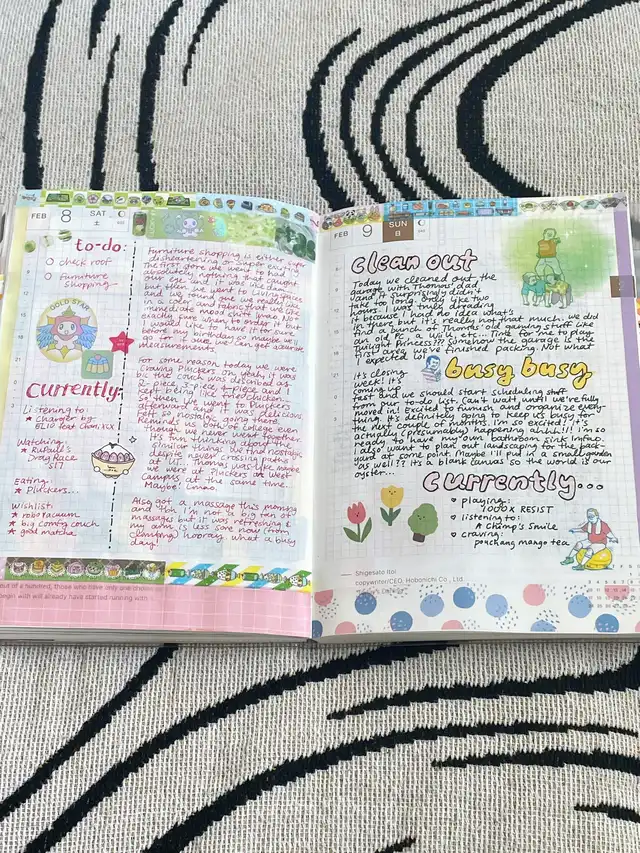 FEB 8 SAT
to-do:
check roof
furniture
shopping
GOLD STAR
Currently:
Listening to
charger by
ELIO feat Charli XCX
Watching:
RuPaul's
Dragrace
S17
Eating:
Pluckers...
Wishlist:
robo vacuum
big comfy couch
good matcha
Furniture shopping is either
disheartening or super exciting
The first place we went to had
absolutely nothing that caught
our eye and it was like damn
but then we went to Livingspaces
and we found one we really like
in a color and fabric that we like
immediate mood shift
exactly sure when to order it but
I would like to have it for sure
before my birthday so maybe we
go for it once we can get accurate
measurements.
For some reason today we were
craving Pluckers
by the couch was described as
2-piece 3-piece 4-piece and I
kept being like fried chicken.
So then we went to Pluckers
afterwards and it was delicious
Felt so nostalgic going there.
Reminds us both of college even
though we never went together.
It's fun thinking about the
similar things we find nostalgic
despite never crossing paths
at UT. Thomas was like maybe
we were at Pluckers on West
Campus at the same time.
Maybe!
Also got a massage this morning
and tbh I'm not a big fan of
massages but it was refreshing &
my arm is less sore now (from
climbing) hooray. What a busy
day!
out of a hundred, those who have only one chicken
begin with will already have started running with
FEB 9 SUN
8
clean out
Today we cleaned out the
garage with Thomas' dad,
and it surprisingly didn't
take too long. Only like two
hours. I was truly dreading
it because I had no idea what's
in there but it's really not that much. We did
find a bunch of Thomas' old gaming stuff like
an old PC, a Wii, etc... Time for me to play
Twilight Princess??? Somehow the garage is the
first area we've finished packing. Not what
I expected!
busy busy
It's closing
week! It's
coming up
fast and we should start scheduling stuff
from our to-do list. Can't wait until we're fully
moved in! Excited to unpack and organize every-
thing. It's definitely going to keep us busy for
the next couple of months. I'm so excited! It's
actually (presumably) happening ahhh!!! I'm so
ready to have my own bathroom sink
I also want to plan out landscaping for the back-
yard at some point. Maybe I'll put in a small garden
as well?? It's a blank canvas so the world is our
oyster...
Currently...
playing:
1000x RESIST
listening to:
A Chimp's Smile
craving:
ponchang mango tea
Shigesato Itoi
copywriter/CEO, Hobonichi Co., Ltd.